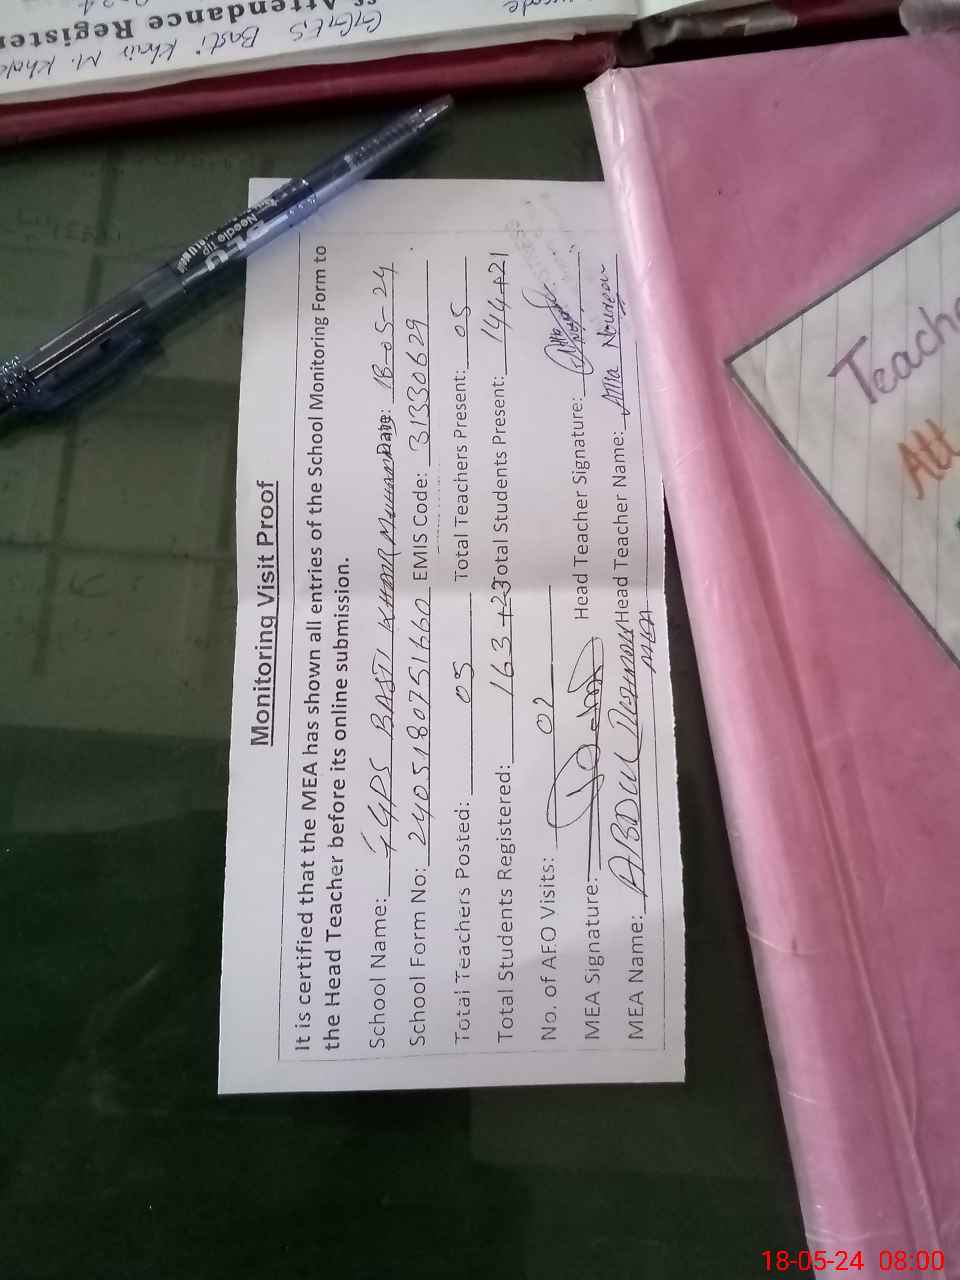 Attendance Register
GGES Basti Khair M.
Monitoring Visit Proof
It is certified that the MEA has shown all entries of the School Monitoring Form to
the Head Teacher before its online submission.
School Name: GGPS BASTI KHAIR MUHAMMAD Date: 18-05-24
School Form No: 240518075166D EMIS Code: 31330629
Total Teachers Posted: 05 Total Teachers Present: 05
Total Students Registered: 163+23 Total Students Present: 144+21
No. of AEO Visits: 02
MEA Signature: Head Teacher Signature:
MEA Name: ABDUL Head Teacher Name: Atta
MEA
Needle Tip
Teach
Att
18-05-24 08:00